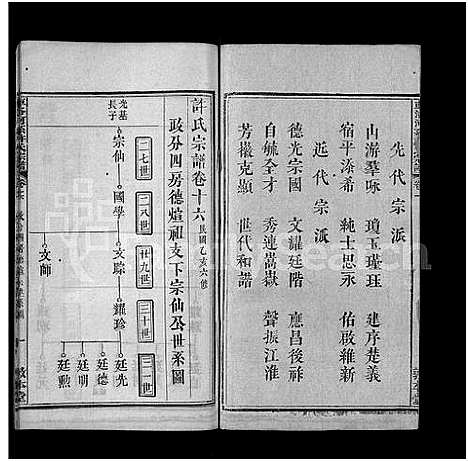 先代宗派
山游羣咏 瓊玉瑾珏 建序楚義
宿平添希 純士思永 佑啟維新
近代宗派
德光宗國 文耀廷階 應昌後祚
自毓全才 秀連嵩嶽 聲振江淮
芳擬克顯 世代和諧
許氏宗譜卷十六 民國乙亥六修
政分四房德煊祖支下宗仙公世系圖
二七世
二八世
廿九世
三十世
三一世
光基長子 宗仙
國學
文踪
耀珍
廷先
廷德
廷明
廷勲
文師
敦本堂